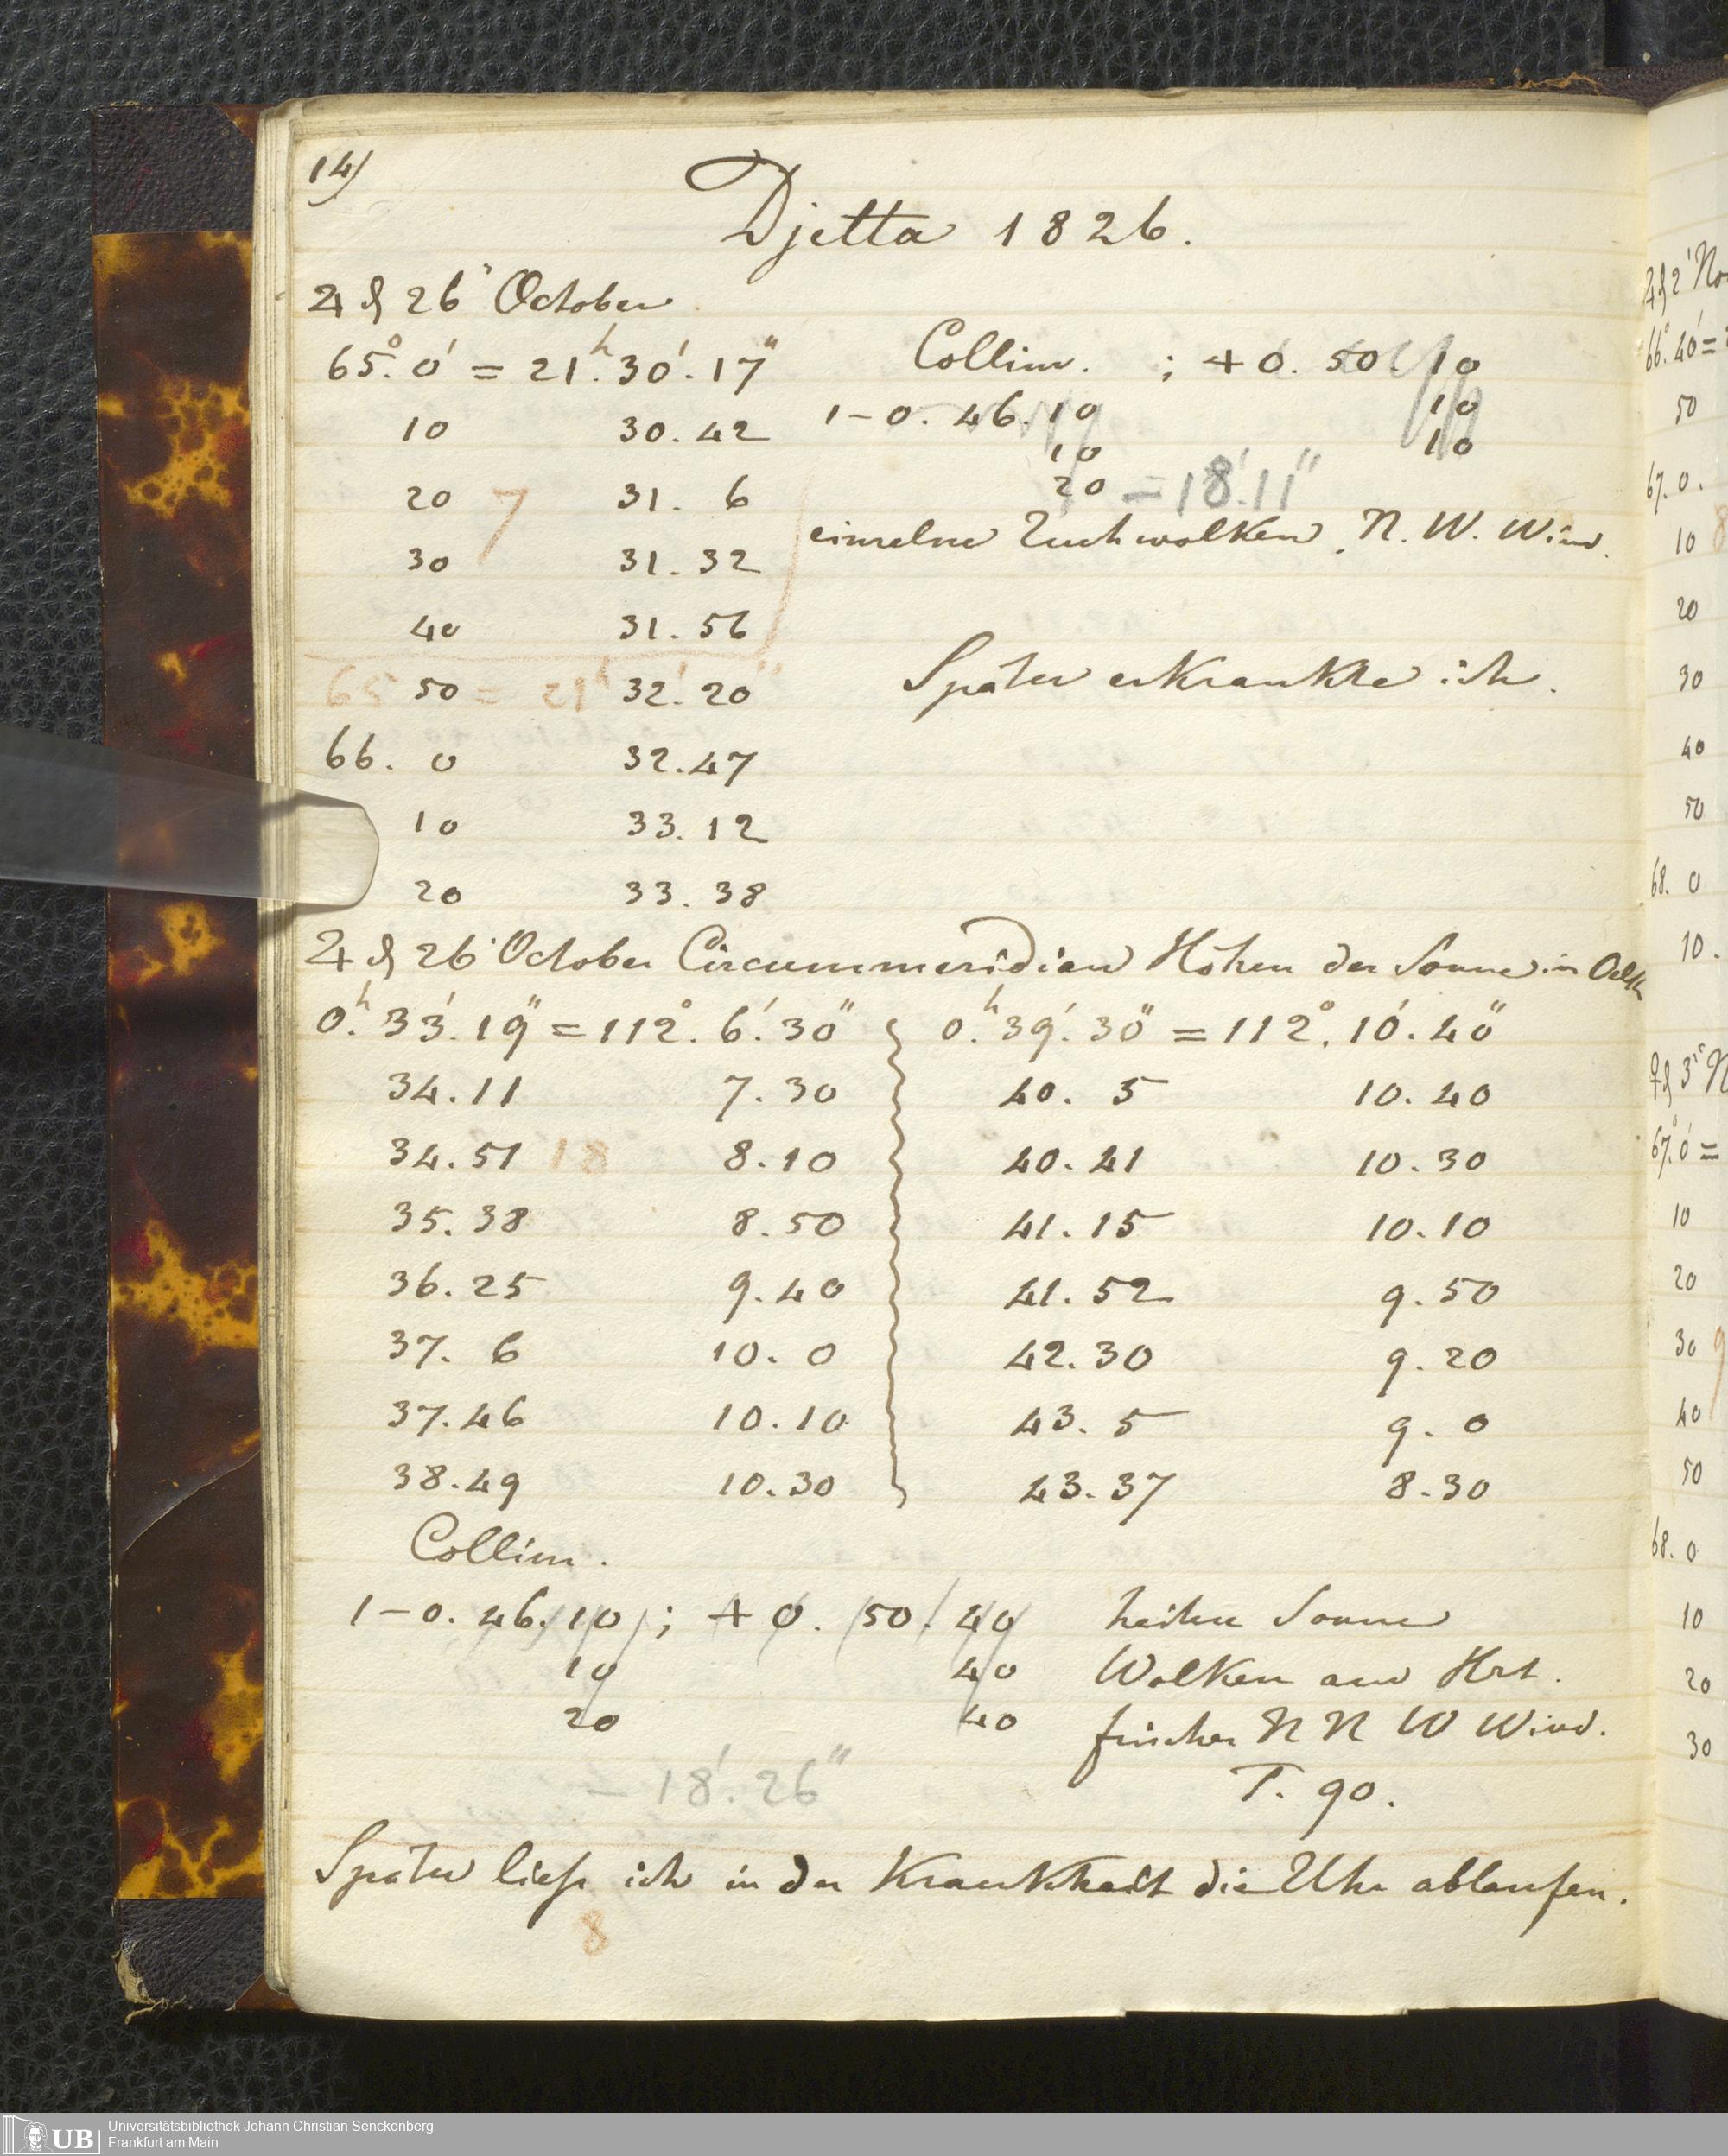 14)
Djetta 1826.
♃ d 26' October
65°. 0' = 21h. 30'. 17"
10 30. 42
20 7 31. 6
30 31. 32
40 31. 56
65 50 = 21h 32'. 20"
66. 0 32. 47
10 33. 12
20 33. 38
Collim. ; + 0. 50. 10
1 - 0. 46. 10 10
10 10
20 = 18'. 11"
einzelne Wolken. N. W. Wind.
Später erkrankte ich.
♃ d 26' October Circummeridian Höhen der Sonne in
0h. 33'. 19" = 112°. 6'. 30" 0h. 39'. 30" = 112°. 10'. 40"
34. 11 7. 30 40. 5 10. 40
34. 51 18 8. 10 40. 41 10. 30
35. 38 8. 50 41. 15 10. 10
36. 25 9. 40 41. 52 9. 50
37. 6 10. 0 42. 30 9. 20
37. 46 10. 10 43. 5 9. 0
38. 49 10. 30 43. 37 8. 30
Collim.
1 - 0. 46. 10 ; + 0. 50. 40 heitere Sonne
10 40 Wolken am Hrt.
20 40 frischer N N W Wind.
- 18'. 26" T. 90.
Später ließ ich in der Krankheit die Uhr ablaufen.
8
♃ d 2'
66°. 40' =
50
67. 0.
10
20
30
40
50
68. 0
10.
♀ d 3'
67°. 0' =
10
20
30
40
50
68. 0
10
20
30
UB Universitätsbibliothek Johann Christian Senckenberg
Frankfurt am Main